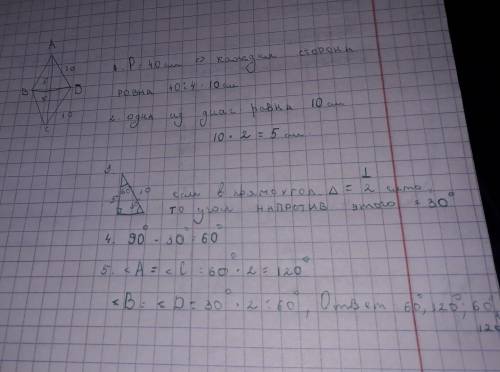 A
10
B
5
5
D
10
C
1. P = 40 см => каждая сторона
равна 40:4 = 10 см
2. одна из диаг равна 10 см
10 : 2 = 5 см
3.
60°
10
5
если в прямоугол Δ = 1/2
то угол напротив этого = 30°
4. 90° - 30° = 60°
5. <A = <C = 60° · 2 = 120°
<B = <D = 30° · 2 = 60°, Ответ 60°, 120°, 60°,
120